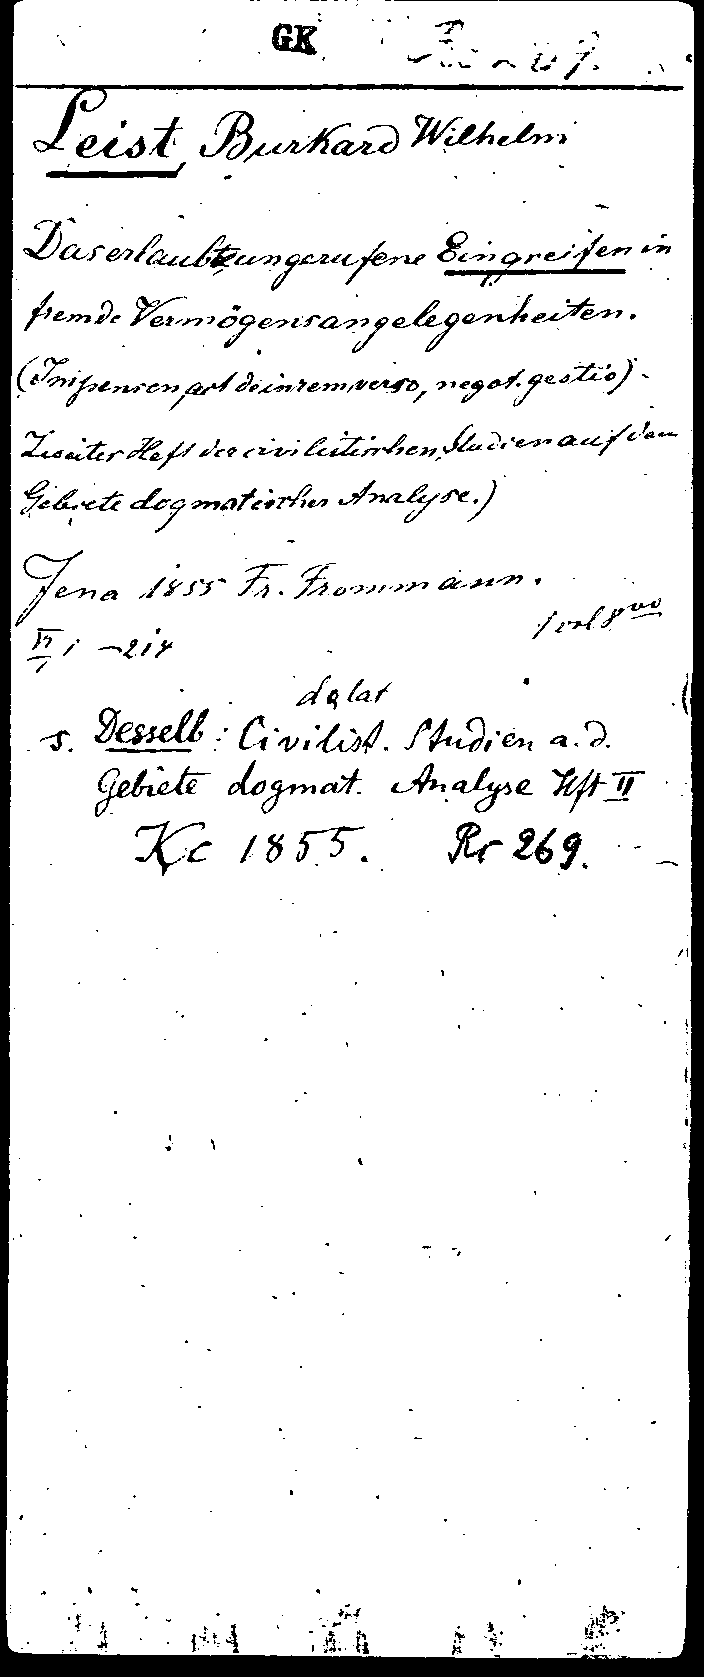 GK
Leist, Burkard Wilhelm
Das erlaubte ungerufene Eingreifen in
fremde Vermögensangelegenheiten.
(Impensen, act de in rem verso, negot. gestio).
Zweites Heft der civilistischen Studien auf dem
Gebiete dogmatischer Analyse.)
Jena 1855 Fr. Frommann.
1 vol 8vo
VI, 1-214
dglat
s. Desselb: Civilist. Studien a. d.
Gebiete dogmat. Analyse Hft II
Kc 1855. Rr 269.